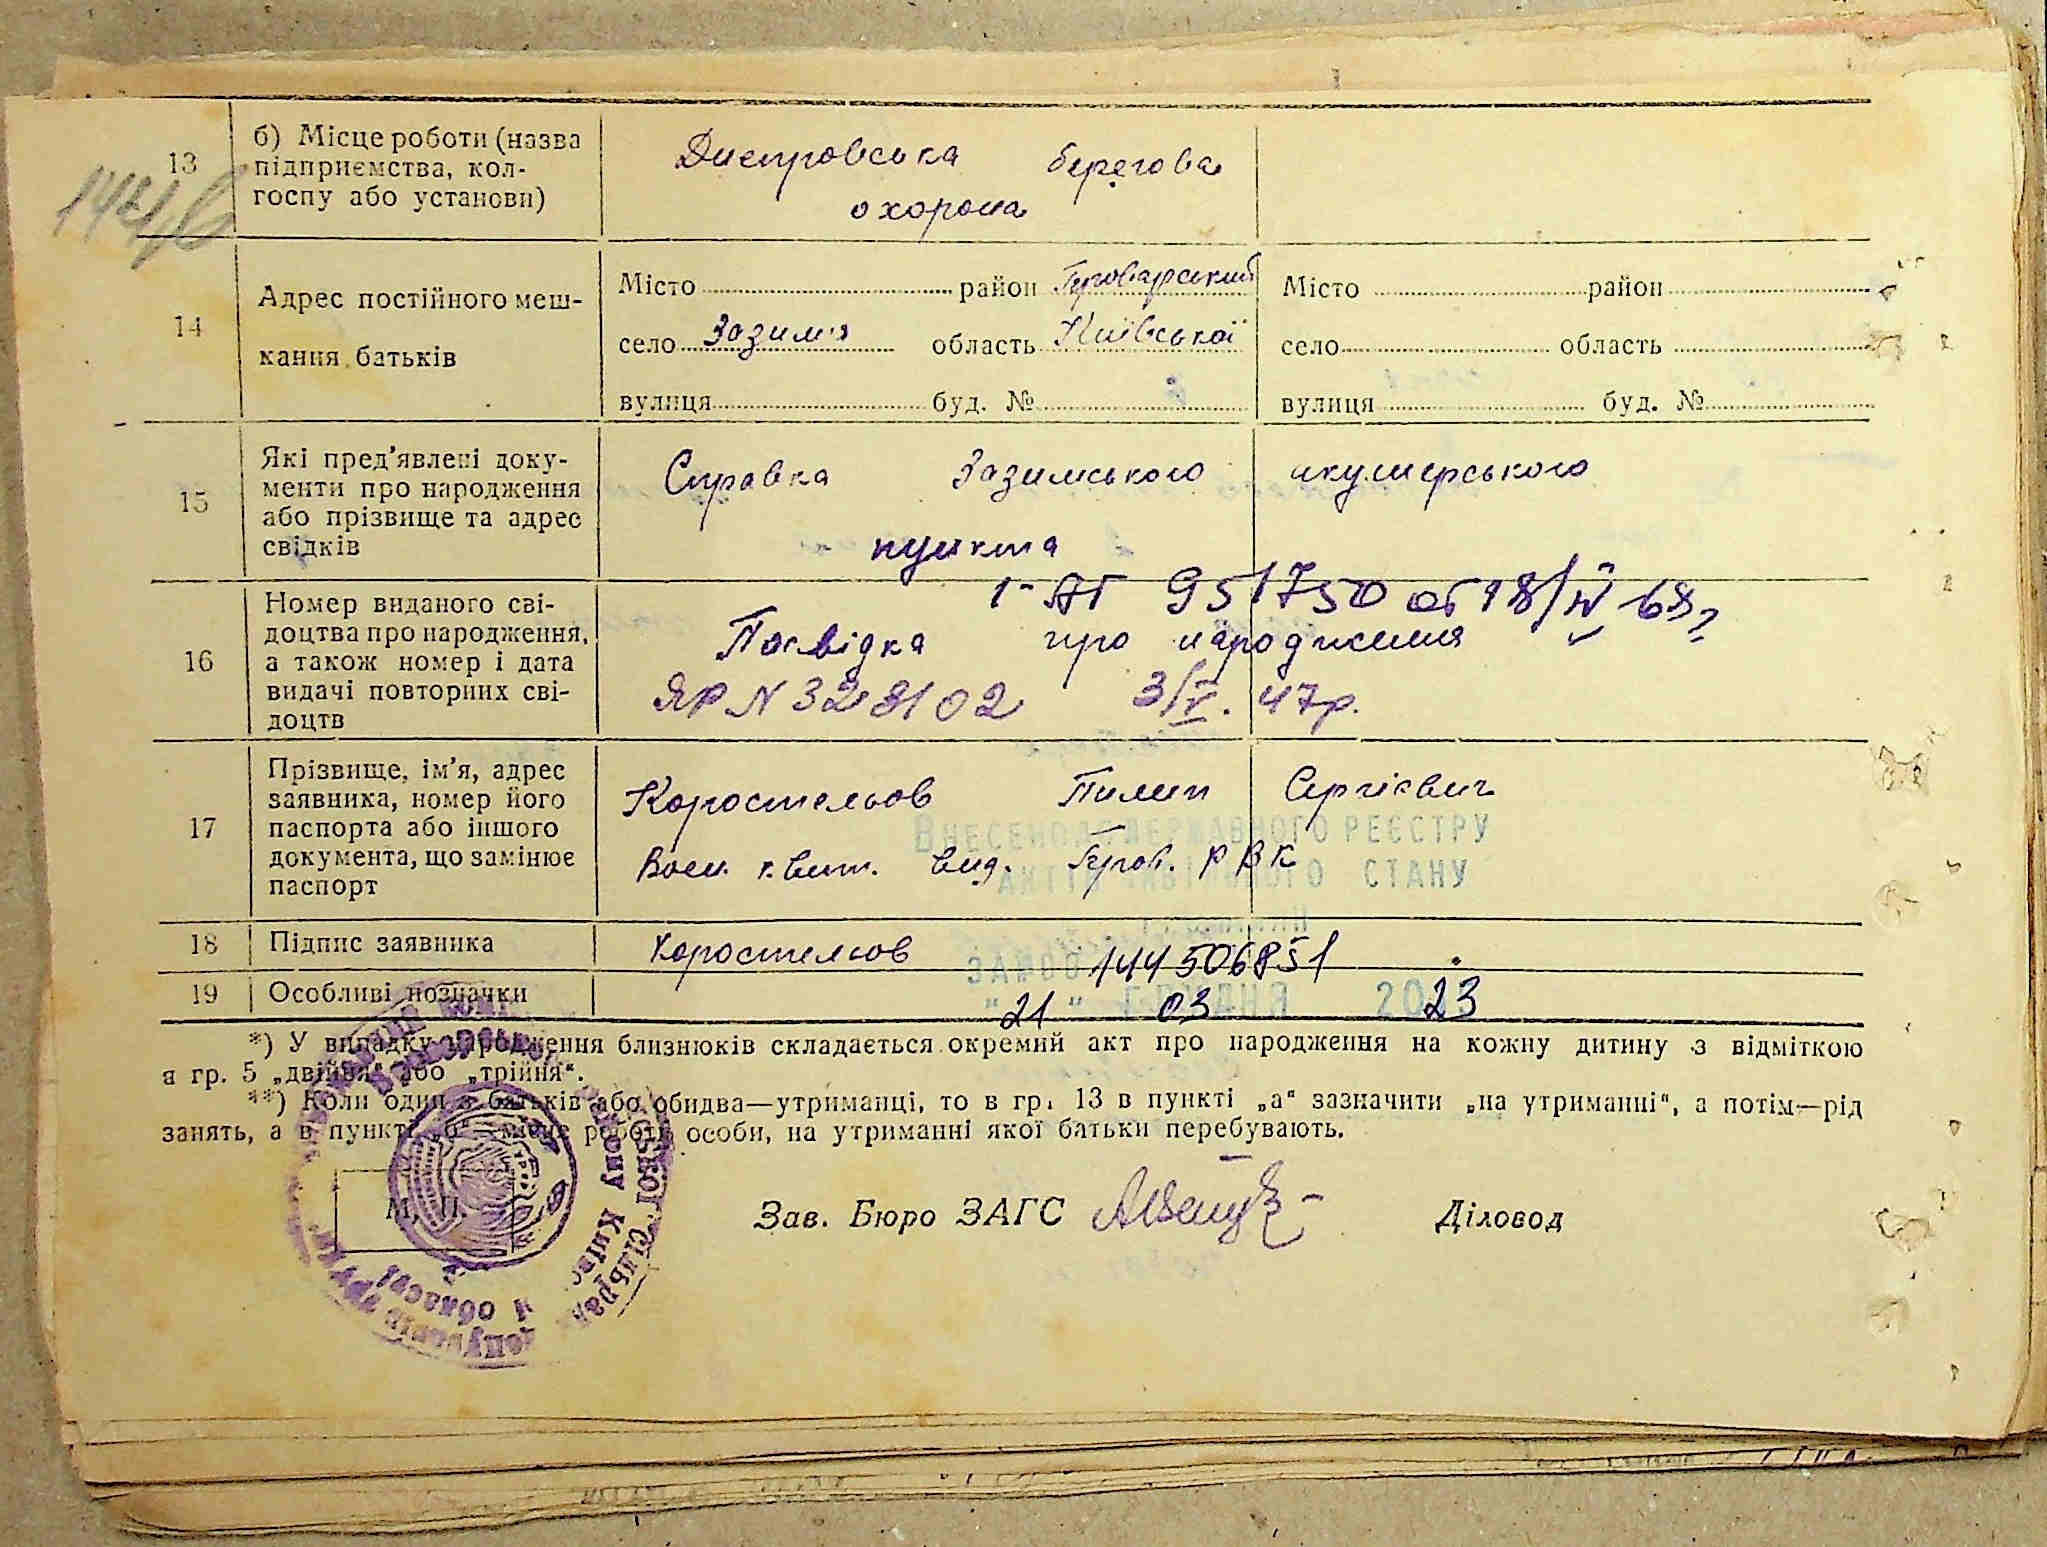 13 б) Місце роботи (назва
підприємства, кол-
госпу або установи)
Дніпровська берегова
охорона
14 Адрес постійного меш-
кання батьків
Місто район Броварський Місто район
село Зазим'я область Київської село область
вулиця буд. № вулиця буд. №
15 Які пред'явлені доку-
менти про народження
або прізвище та адрес
свідків
Справка Зазимського акушерського
пункта
16 Номер виданого сві-
доцтва про народження,
а також номер і дата
видачі повторних сві-
доцтв
951750 от 18/IV 68г
Посвідка про народження
ЯР N 328102 3/V. 47р.
17 Прізвище, ім'я, адрес
заявника, номер його
паспорта або іншого
документа, що замінює
паспорт
Коростельов Пилип Сергієвич
Воен. квит. вид. Бров. РВК
ВНЕСЕНО ДО ДЕРЖАВНОГО РЕЄСТРУ
АКТІВ ЦИВІЛЬНОГО СТАНУ
18 Підпис заявника Коростельов 144506851
19 Особливі позначки
21 03 2023
*) У випадку народження близнюків складається окремий акт про народження на кожну дитину з відміткою
в гр. 5 „двійня" або „трійня".
**) Коли один з батьків або обидва—утриманці, то в гр. 13 в пункті „а" зазначити „на утриманні", а потім—рід
занять, а в пункті „б"—місце роботи особи, на утриманні якої батьки перебувають.
М. П.
Зав. Бюро ЗАГС Діловод